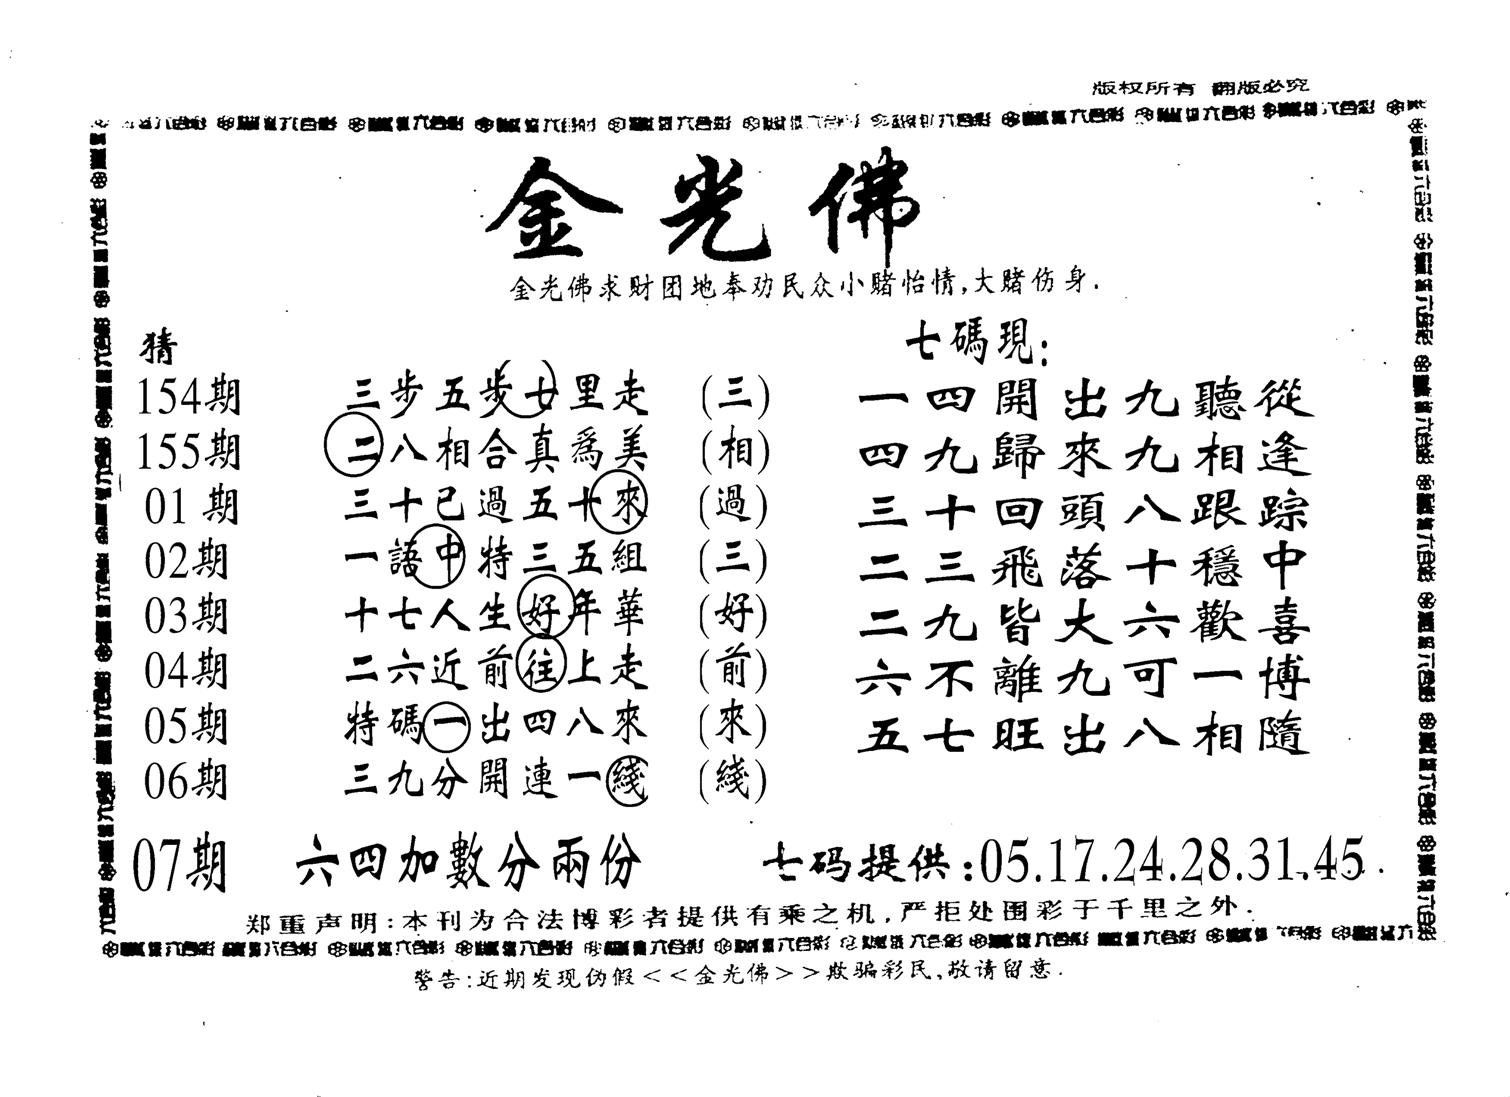 版权所有 翻版必究
金光佛
金光佛求财团地奉劝民众小赌怡情,大赌伤身.
猜
七碼現:
154期 三步五步七里走 (三) 一四開出九聽從
155期 二八相合真爲美 (相) 四九歸來九相逢
01期 三十已過五十來 (過) 三十回頭八跟踪
02期 一語中特三五組 (三) 二三飛落十穩中
03期 十七人生好年華 (好) 二九皆大六歡喜
04期 二六近前往上走 (前) 六不離九可一博
05期 特碼一出四八來 (來) 五七旺出八相隨
06期 三九分開連一綫 (綫)
07期 六四加數分兩份 七码提供:05.17.24.28.31.45.
郑重声明:本刊为合法博彩者提供有乘之机,严拒处围彩于千里之外.
警告:近期发现伪假<<金光佛>>欺骗彩民,敬请留意.